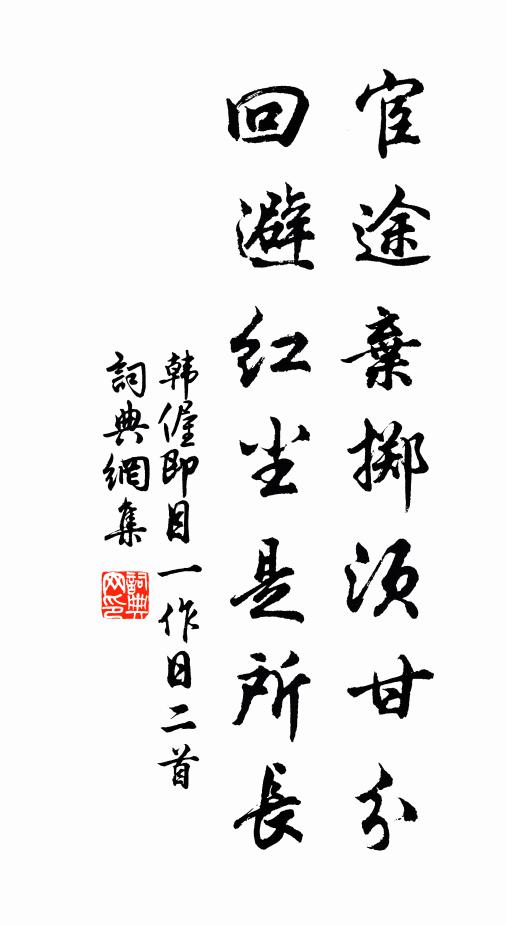 宦途棄擲須甘分
回避紅尘是所長
韩偓即目一作日二首
詞典網集
詞典网印